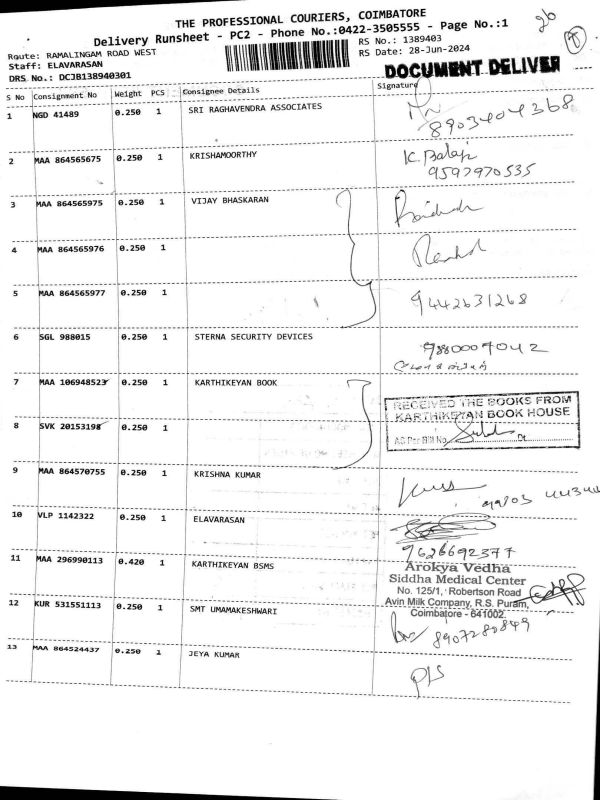 THE PROFESSIONAL COURIERS, COIMBATORE
Delivery Runsheet - PC2 - Phone No.:0422-3505555 - Page No.:1
Route: RAMALINGAM ROAD WEST
RS No.: 1389403
Staff: ELAVARASAN
RS Date: 28-Jun-2024
DRS No.: DCJB138940301
DOCUMENT DELIVER
S No Consignment No Weight PCS Consignee Details Signature
1 NGD 41489 0.250 1 SRI RAGHAVENDRA ASSOCIATES
8903404368
2 MAA 864565675 0.250 1 KRISHAMOORTHY K. Balaji
9597970535
3 MAA 864565975 0.250 1 VIJAY BHASKARAN
4 MAA 864565976 0.250 1
5 MAA 864565977 0.250 1 9442631268
6 SGL 988015 0.250 1 STERNA SECURITY DEVICES
7 MAA 106948523 0.250 1 KARTHIKEYAN BOOK
RECEIVED THE BOOKS FROM
KARTHIKEYAN BOOK HOUSE
8 SVK 20153198 0.250 1
AS Per Bill No.
9 MAA 864570755 0.250 1 KRISHNA KUMAR
10 VLP 1142322 0.250 1 ELAVARASAN
9626692377
11 MAA 296990113 0.420 1 KARTHIKEYAN BSMS
Arokya Vedha
Siddha Medical Center
No. 125/1, Robertson Road
Avin Milk Company, R.S. Puram,
Coimbatore - 641002.
12 KUR 531551113 0.250 1 SMT UMAMAKESHWARI
8907280849
13 MAA 864524437 0.250 1 JEYA KUMAR